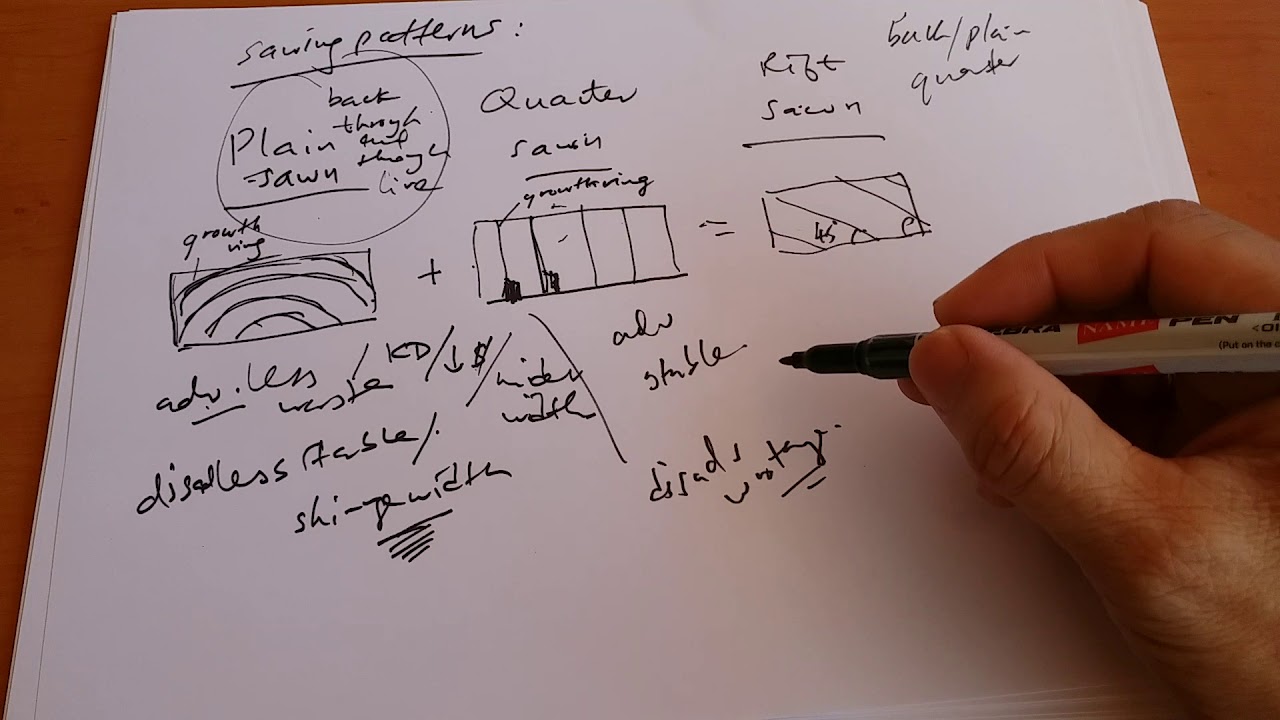 sawing patterns:
back
Plain through
and
-sawn through
live
Quarter
sawn
Rift
sawn
back/plain
quarter
growth
ring
growth ring
+
=
45
adv. less / KD/↓$/ wider
waste width
disad less stable/
width
adv
stable
disads
ZEBRA NAME PEN
(Put on the c